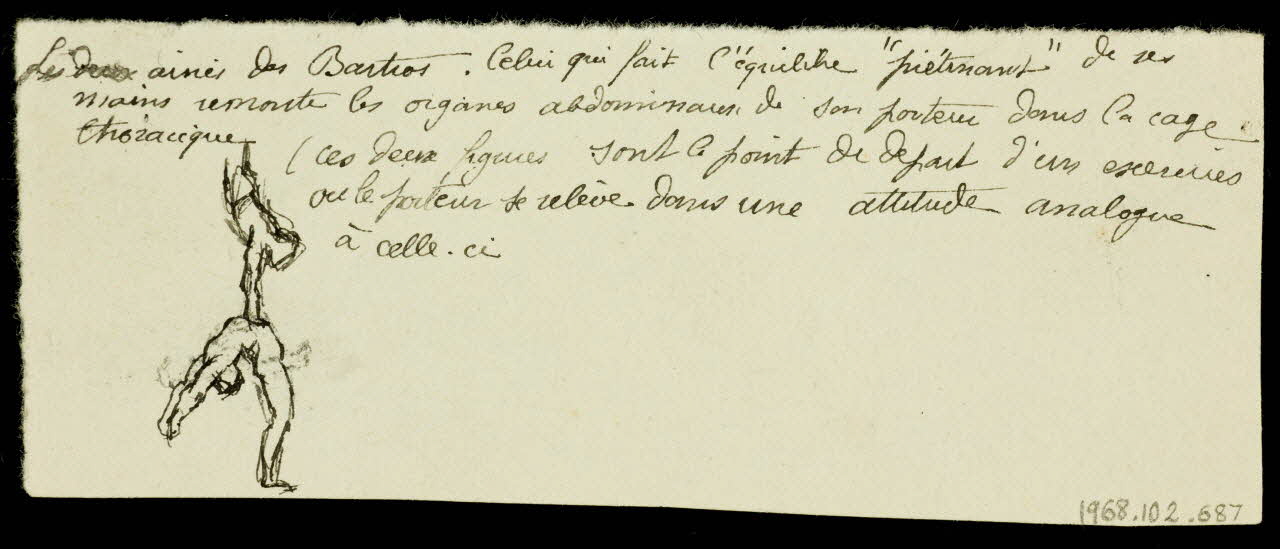 Les deux ainés des Bastios. Celui qui fait l'équilibre "piétinant" de ses
mains remonte les organes abdominaux de son porteur dans la cage
thoracique
(ces deux figures sont le point de départ d'un exercices
ou le porteur se relève dans une attitude analogue
à celle-ci
1968.102.687